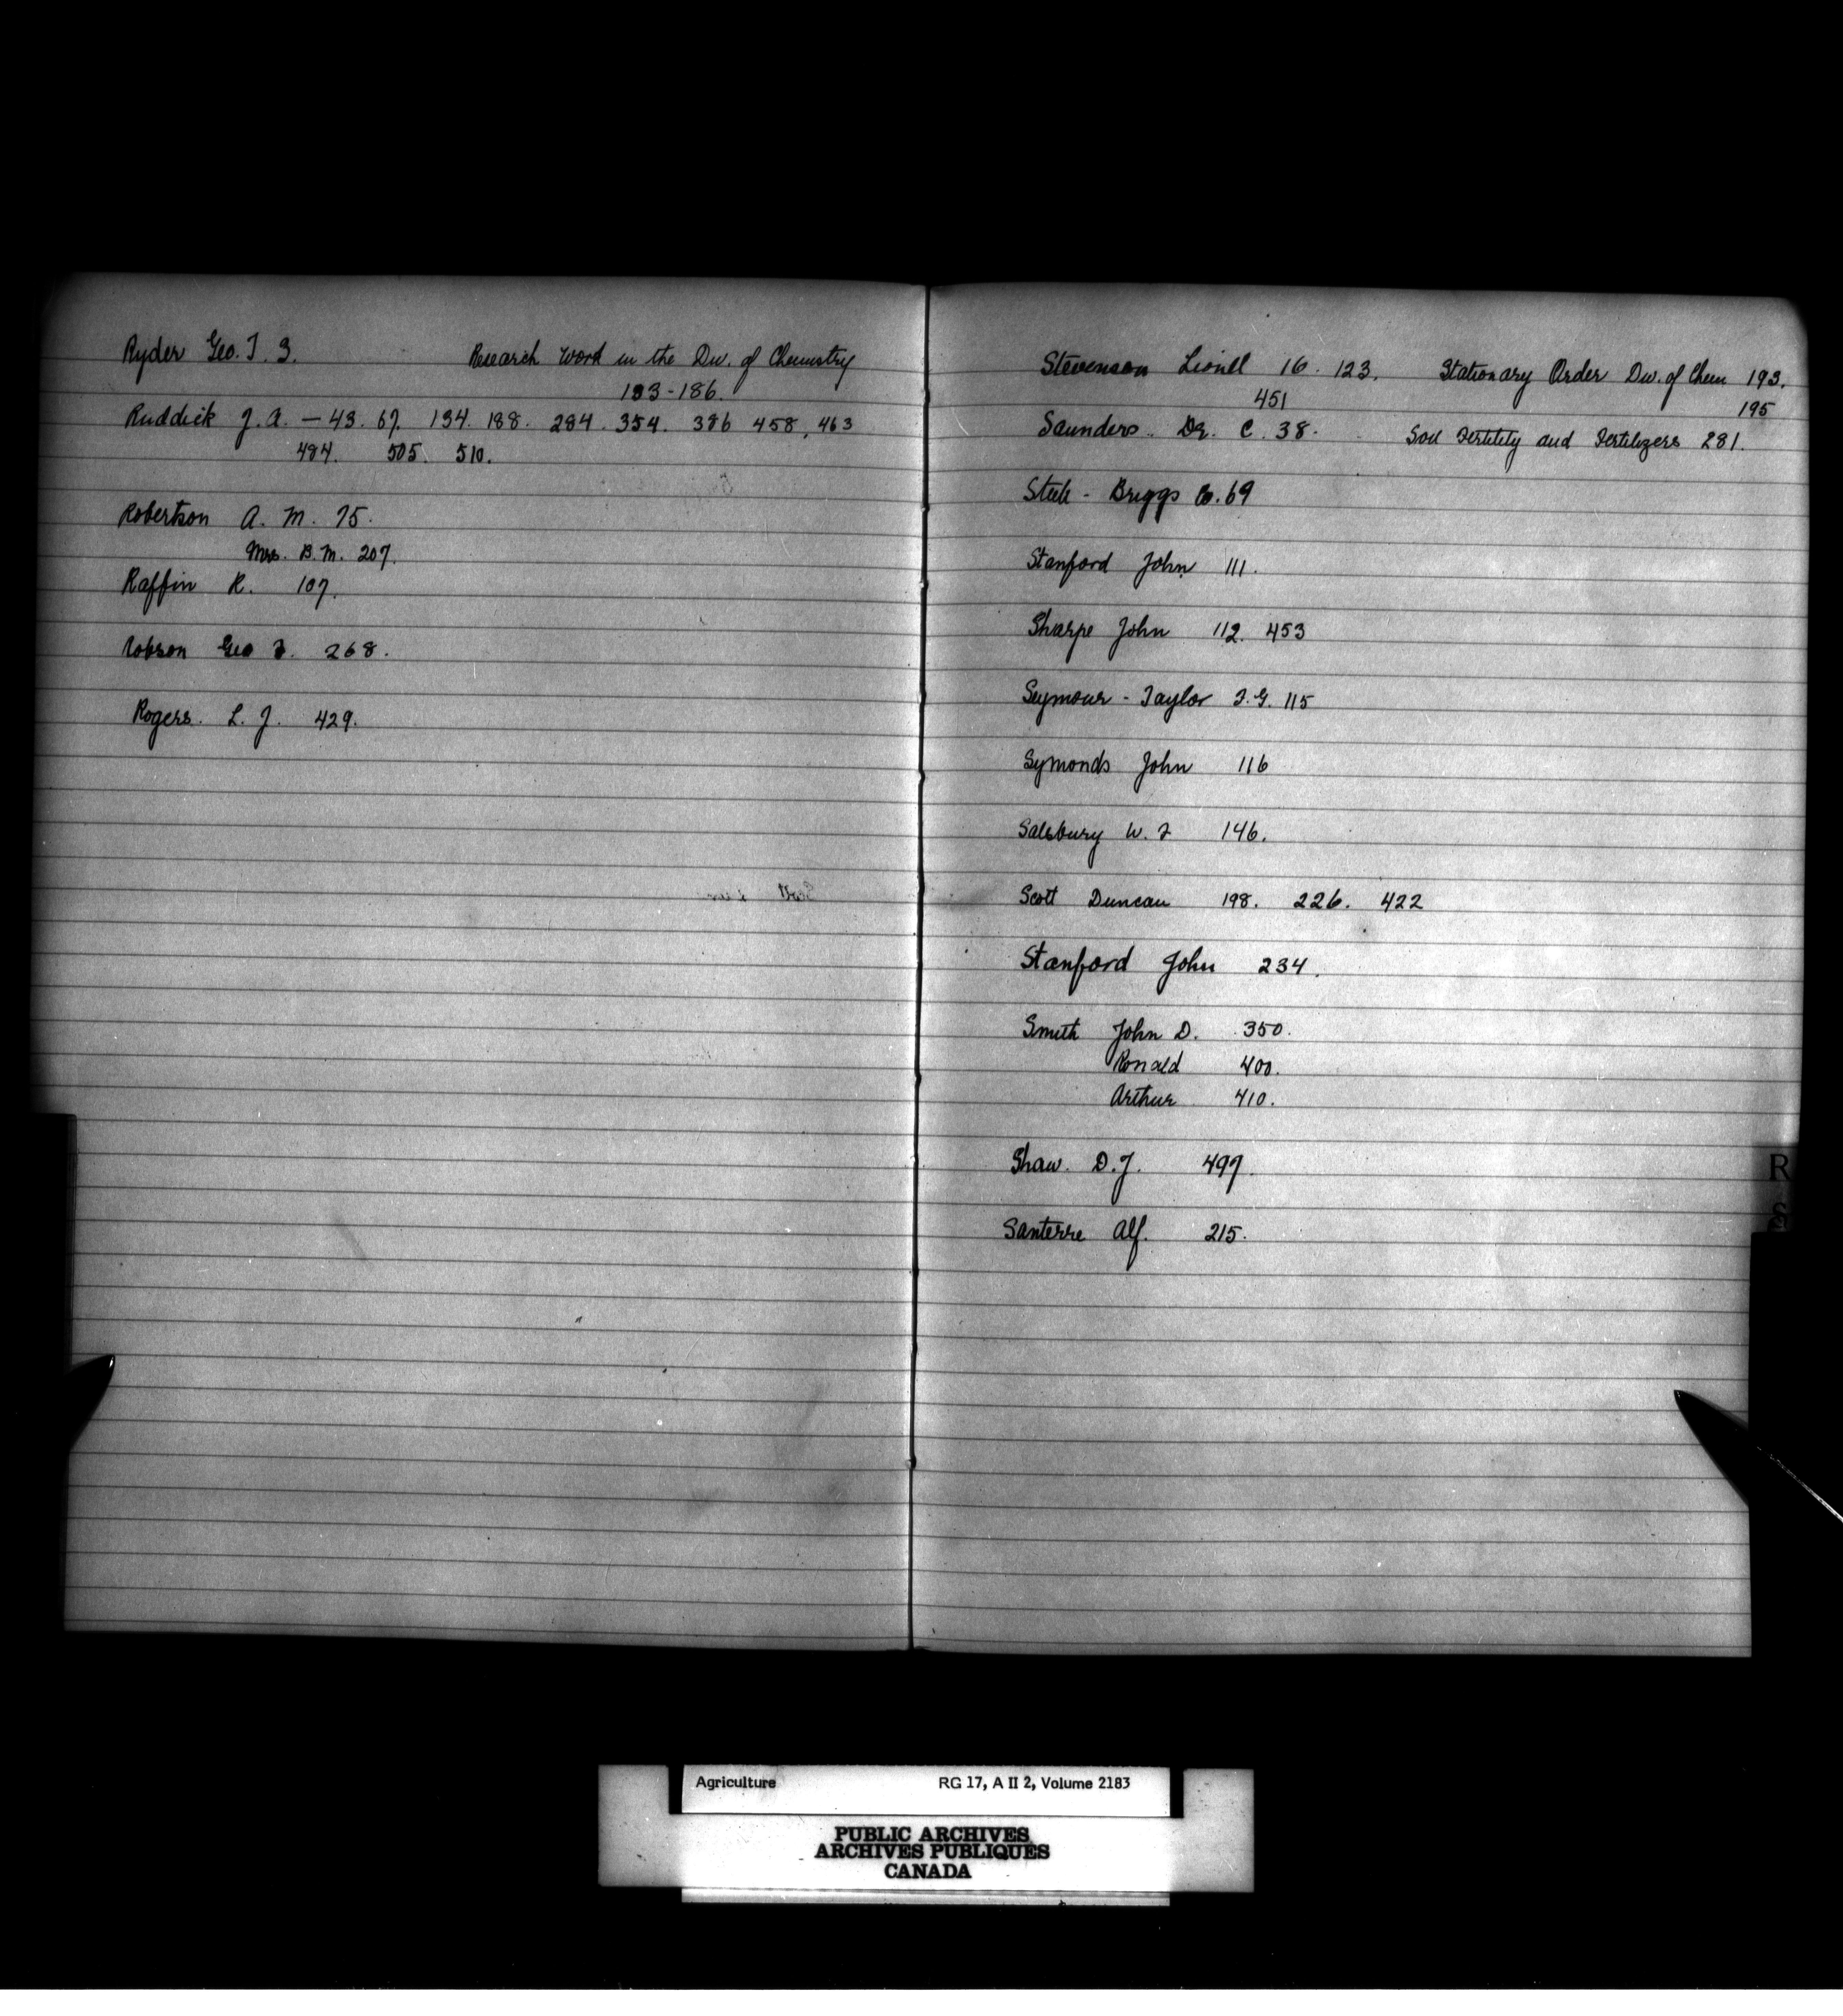 Ryder Geo. T. 3.
Research Work in the Div. of Chemistry
183-186.
Ruddick J. A. — 43. 67. 134. 188. 284. 354. 386 458, 463
484. 505. 510.
Robertson A. M. 75.
Mrs. B. M. 207.
Raffin R. 107.
Robson Geo F. 268.
Rogers. L. J. 429.
Stevenson Lionel 16. 123.
451
Stationary Order Div. of Chem 193.
195
Saunders. Dr. C. 38.
Soil Fertility and Fertilizers 281.
Steele - Briggs Co. 69
Stanford John 111.
Sharpe John 112. 453
Seymour - Taylor F. G. 115
Symonds John 116
Salsbury W. F 146.
Scott Duncan 198. 226. 422
Stanford John 234.
Smith John D. 350.
Ronald 400.
Arthur 410.
Shaw. D. J. 497.
Santerre Alf. 215.
R
S
Agriculture RG 17, A II 2, Volume 2183
PUBLIC ARCHIVES
ARCHIVES PUBLIQUES
CANADA